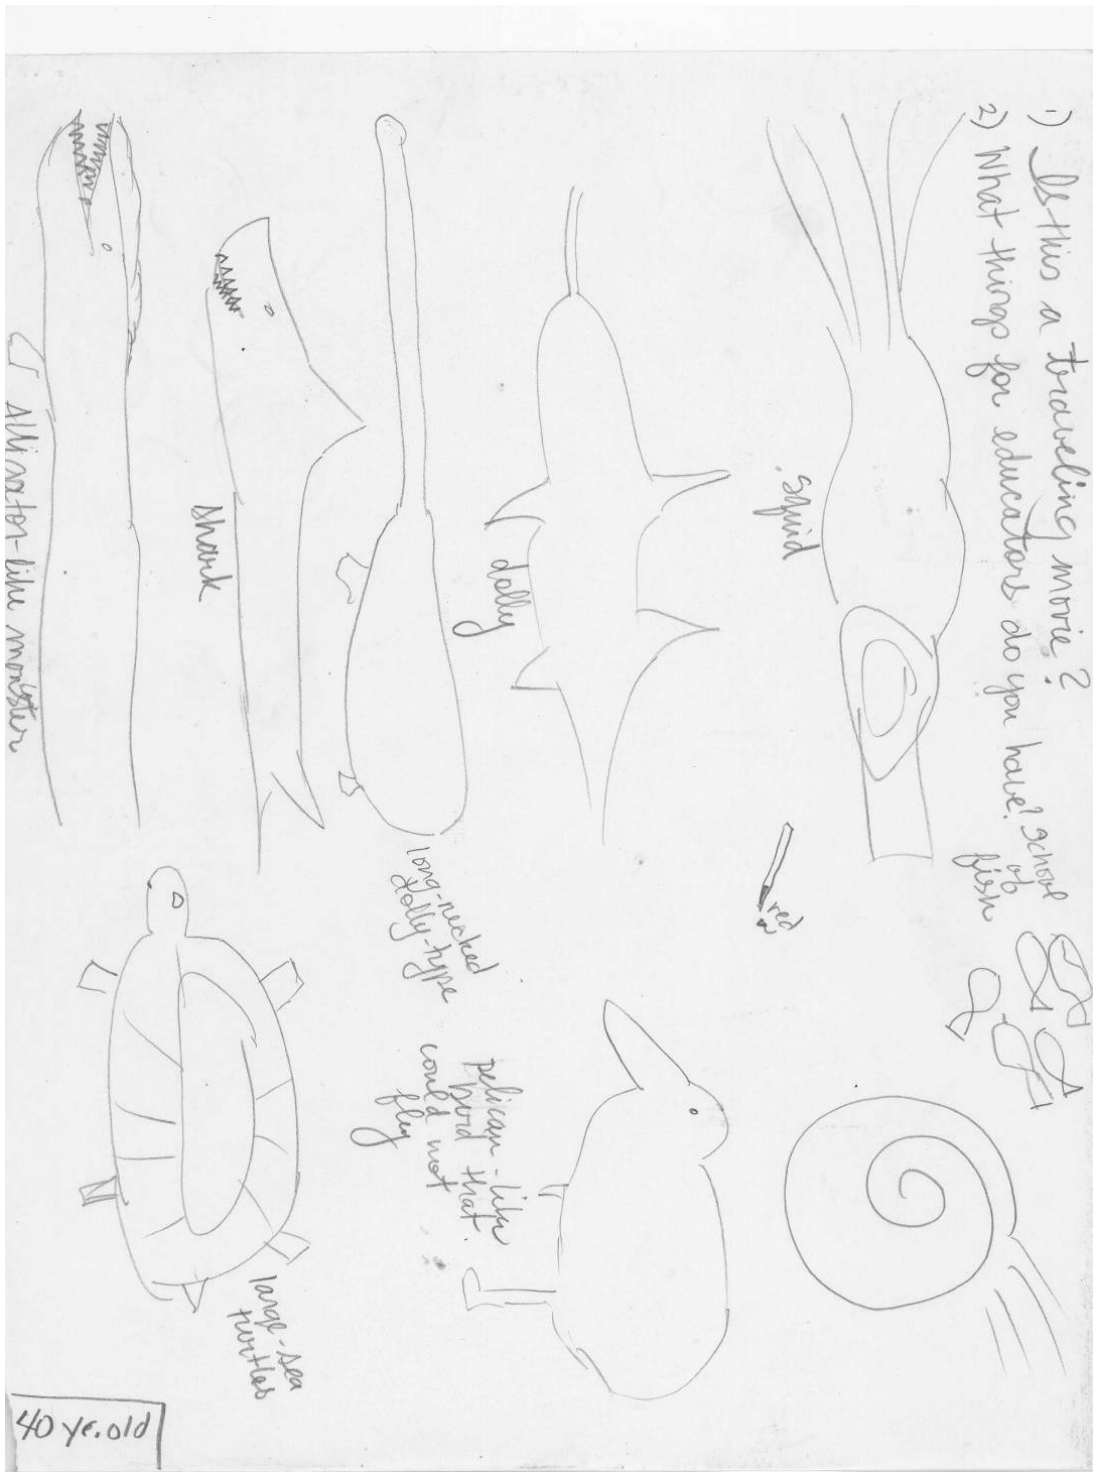 1) Is this a traveling movie?
2) What things for educators do you have?
School
of
fish
squid
red
dolly
long-necked
dolly-type
pelican-like
bird that
could not
fly
shark
Alligator-like monster
large-sea
turtles
40 yr. old